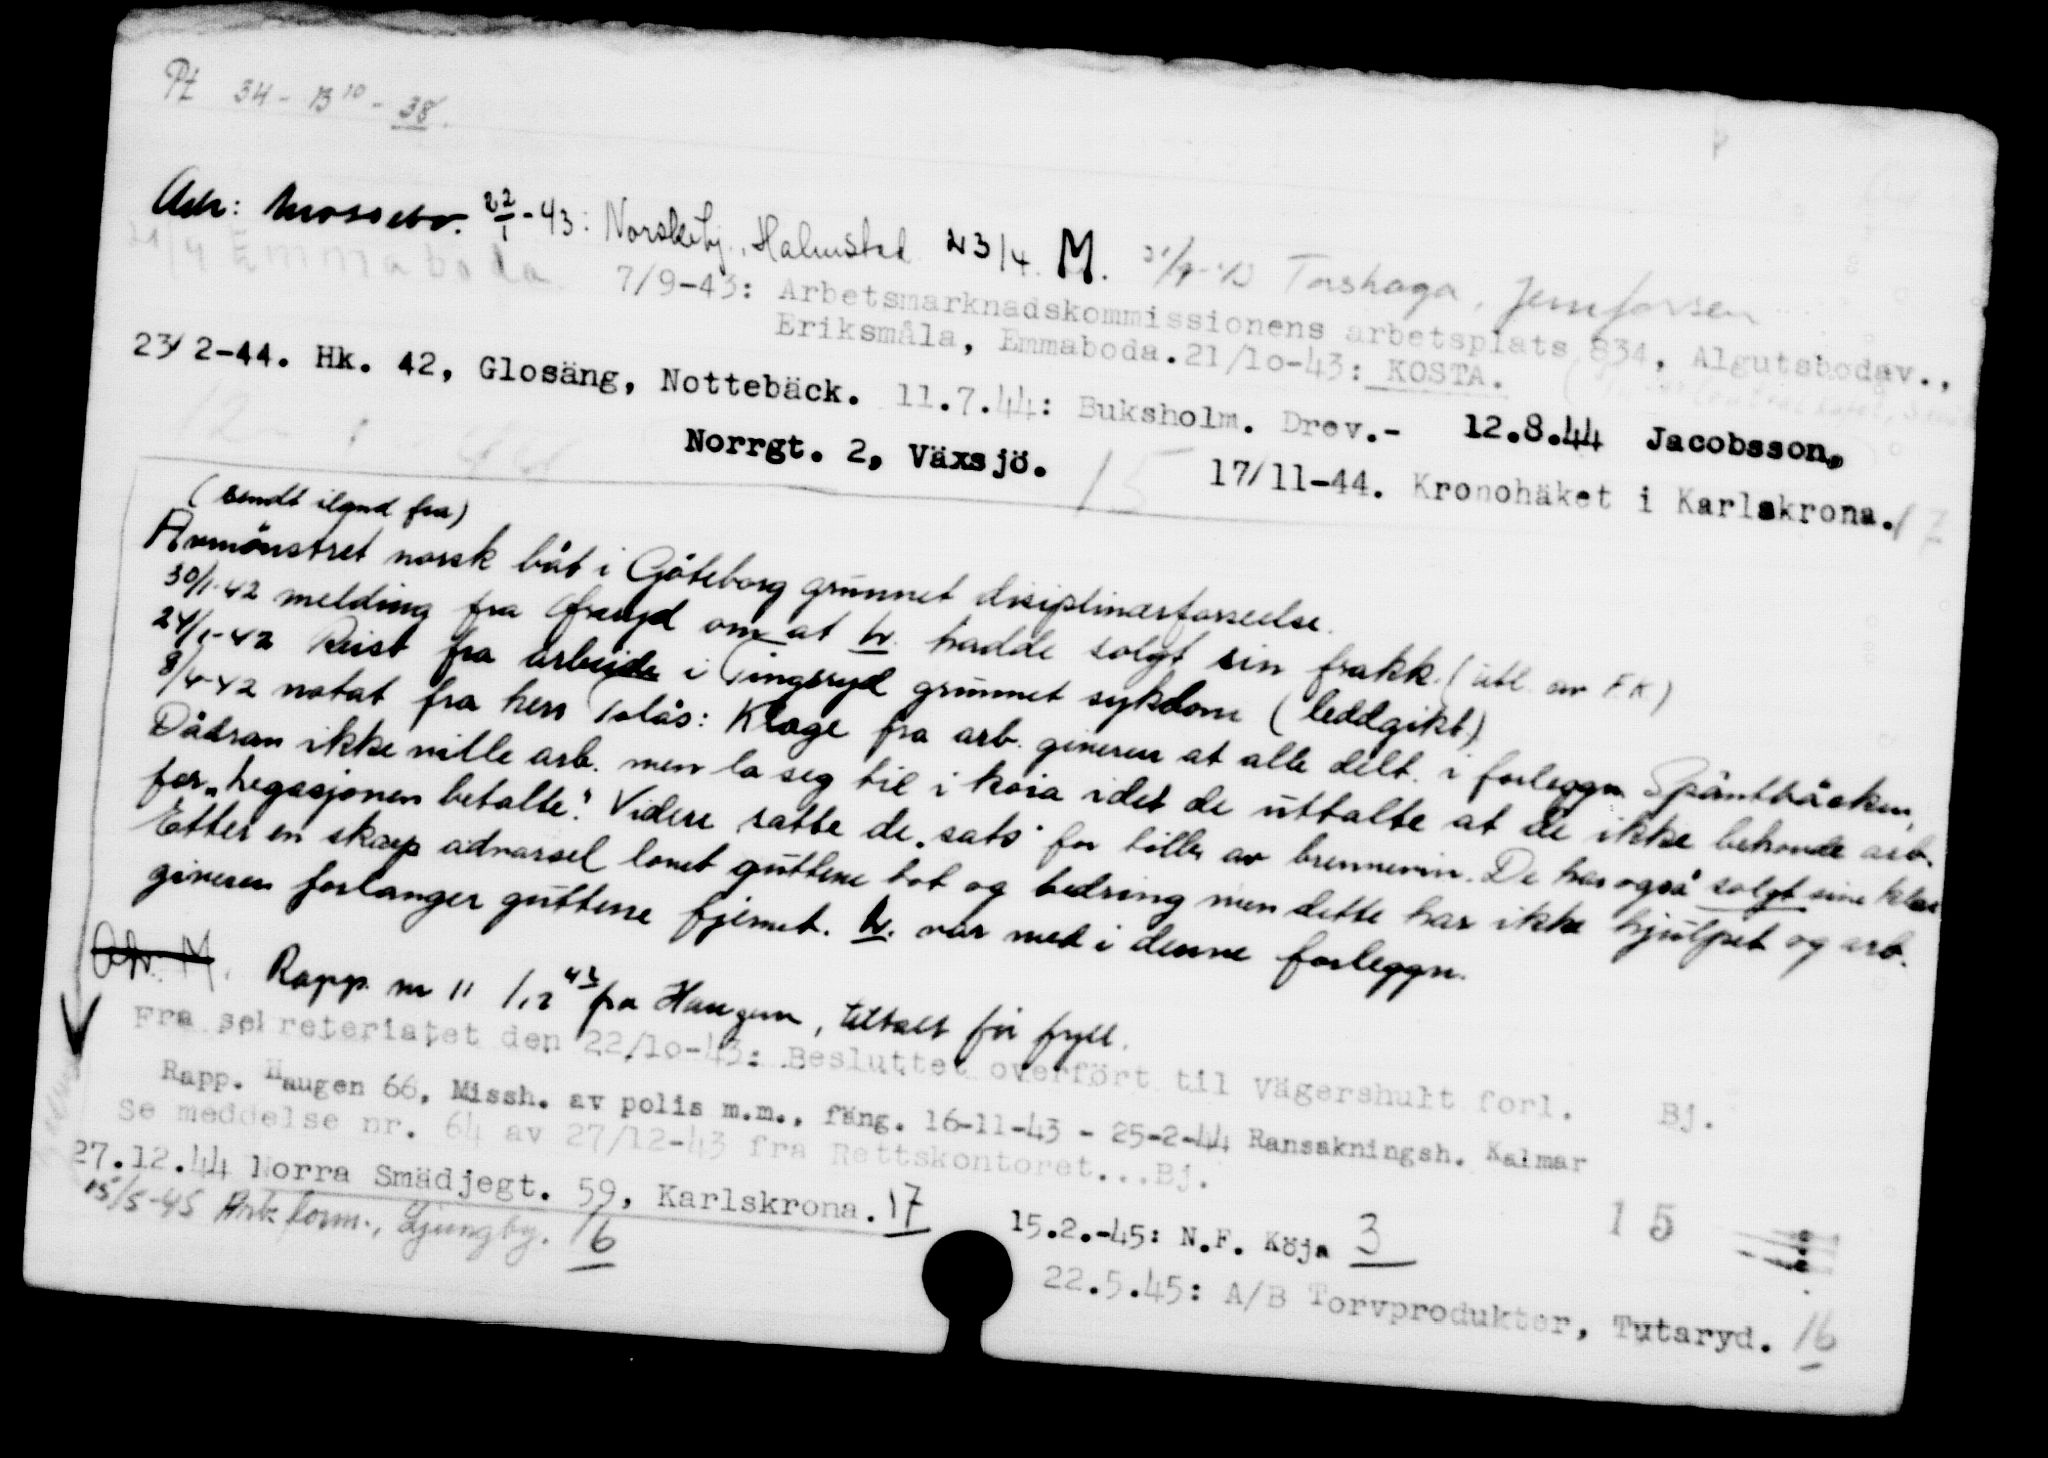 Pt 34 - B10 - 38.
Adr: Mossebo. 22/1-43: Norskebj., Halmstad 23/4. M. Torshaga, Jernforsen
21/4 Emmaboda
7/9-43: Arbetsmarknadskommissionens arbetsplats 834, Algutsbodav.,
Eriksmåla, Emmaboda. 21/10-43: KOSTA.
23/2-44. Hk. 42, Glosäng, Nottebäck. 11.7.44: Buksholm. Drev.- 12.8.44 Jacobsson,
Norrgt. 2, Växsjö. 15 17/11-44. Kronohäket i Karlskrona. 17
(sendt iland fra)
Avmönstret norsk båt i Göteborg grunnet disiplinærforseelse.
30/1-42 melding fra om at hv. hadde solgt sin frakk. (utl. av FK)
24/1-42 Reist fra arbeide i Tingsryd grunnet sykdom (leddgikt)
8/4-42 notat fra herr Tolås: Klage fra arb. giveren at alle delt. i forleggn. Späntbäcken,
Dådran ikke ville arb. men la seg til i koia idet de uttalte at de ikke behøvde arb.
for „legasjonen betalte". Videre satte de „sats" for tilv. av brennevin. De har også solgt sine klær
Etter en skarp advarsel lovet guttene bot og bedring men dette har ikke hjulpet og arb.
giveren forlanger guttene fjernet. hv. var med i denne forleggn.
Adr. M. Rapp. nr 11 1/12 43 fra Haugen, tiltalt for fyll.
Fra sekreteriatet den 22/10-43: Besluttet overfört til Vägershult forl. Bj.
Rapp. Haugen 66, Missh. av polis m.m., fäng. 16-11-43 - 25-2-44 Ransakningsh. Kalmar
Se meddelse nr. 64 av 27/12-43 fra Rettskontoret...Bj.
27.12.44 Norra Smädjegt. 59, Karlskrona. 17
15.2.-45: N.F. Köja 3 15
15/5-45 Arb. form., Ljungby. 16
22.5.45: A/B Torvprodukter, Tutaryd. 16